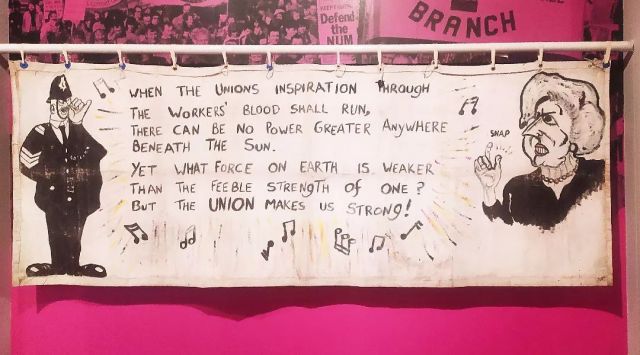 KEEP FIGHTING
Defend
the
NUM
BRANCH
WHEN THE UNIONS INSPIRATION THROUGH
THE WORKERS' BLOOD SHALL RUN,
THERE CAN BE NO POWER GREATER ANYWHERE
BENEATH THE SUN.
YET WHAT FORCE ON EARTH IS WEAKER
THAN THE FEEBLE STRENGTH OF ONE?
BUT THE UNION MAKES US STRONG!
SNAP